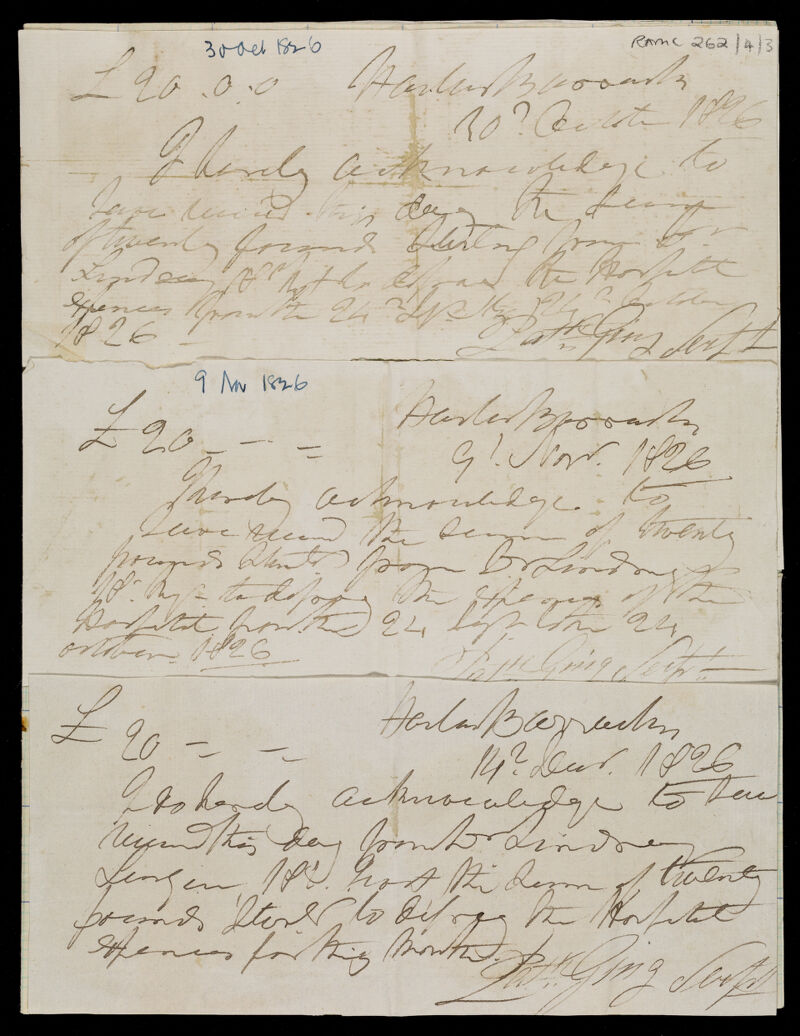 30 Oct 1826
RAMC 262/4/3
£ 20 . 0 . 0 Barracks
30 1826
I hereby acknowledge to
have received this day the sum
of twenty pounds Sterling from Dr
Lindsey 18 to defray the Hospital
expences from the 24 Sept to 24
1826 Pattk Ging Serjt
9 Nov 1826
£ 20 - - = Barracks
9 Novr. 1826
I hereby acknowledge to
have received the sum of twenty
pounds from Dr Lindsey
18 to defray the expences of the
Hospital from the 24 Sept to the 24
october 1826 Pattk Ging Serjt
£ 20 - - Barracks
14 Decr. 1826
I do hereby acknowledge to have
received this day from Dr Lindsey
18 the sum of twenty
pounds to defray the Hospital
expences for this Month.
Pattk Ging Serjt